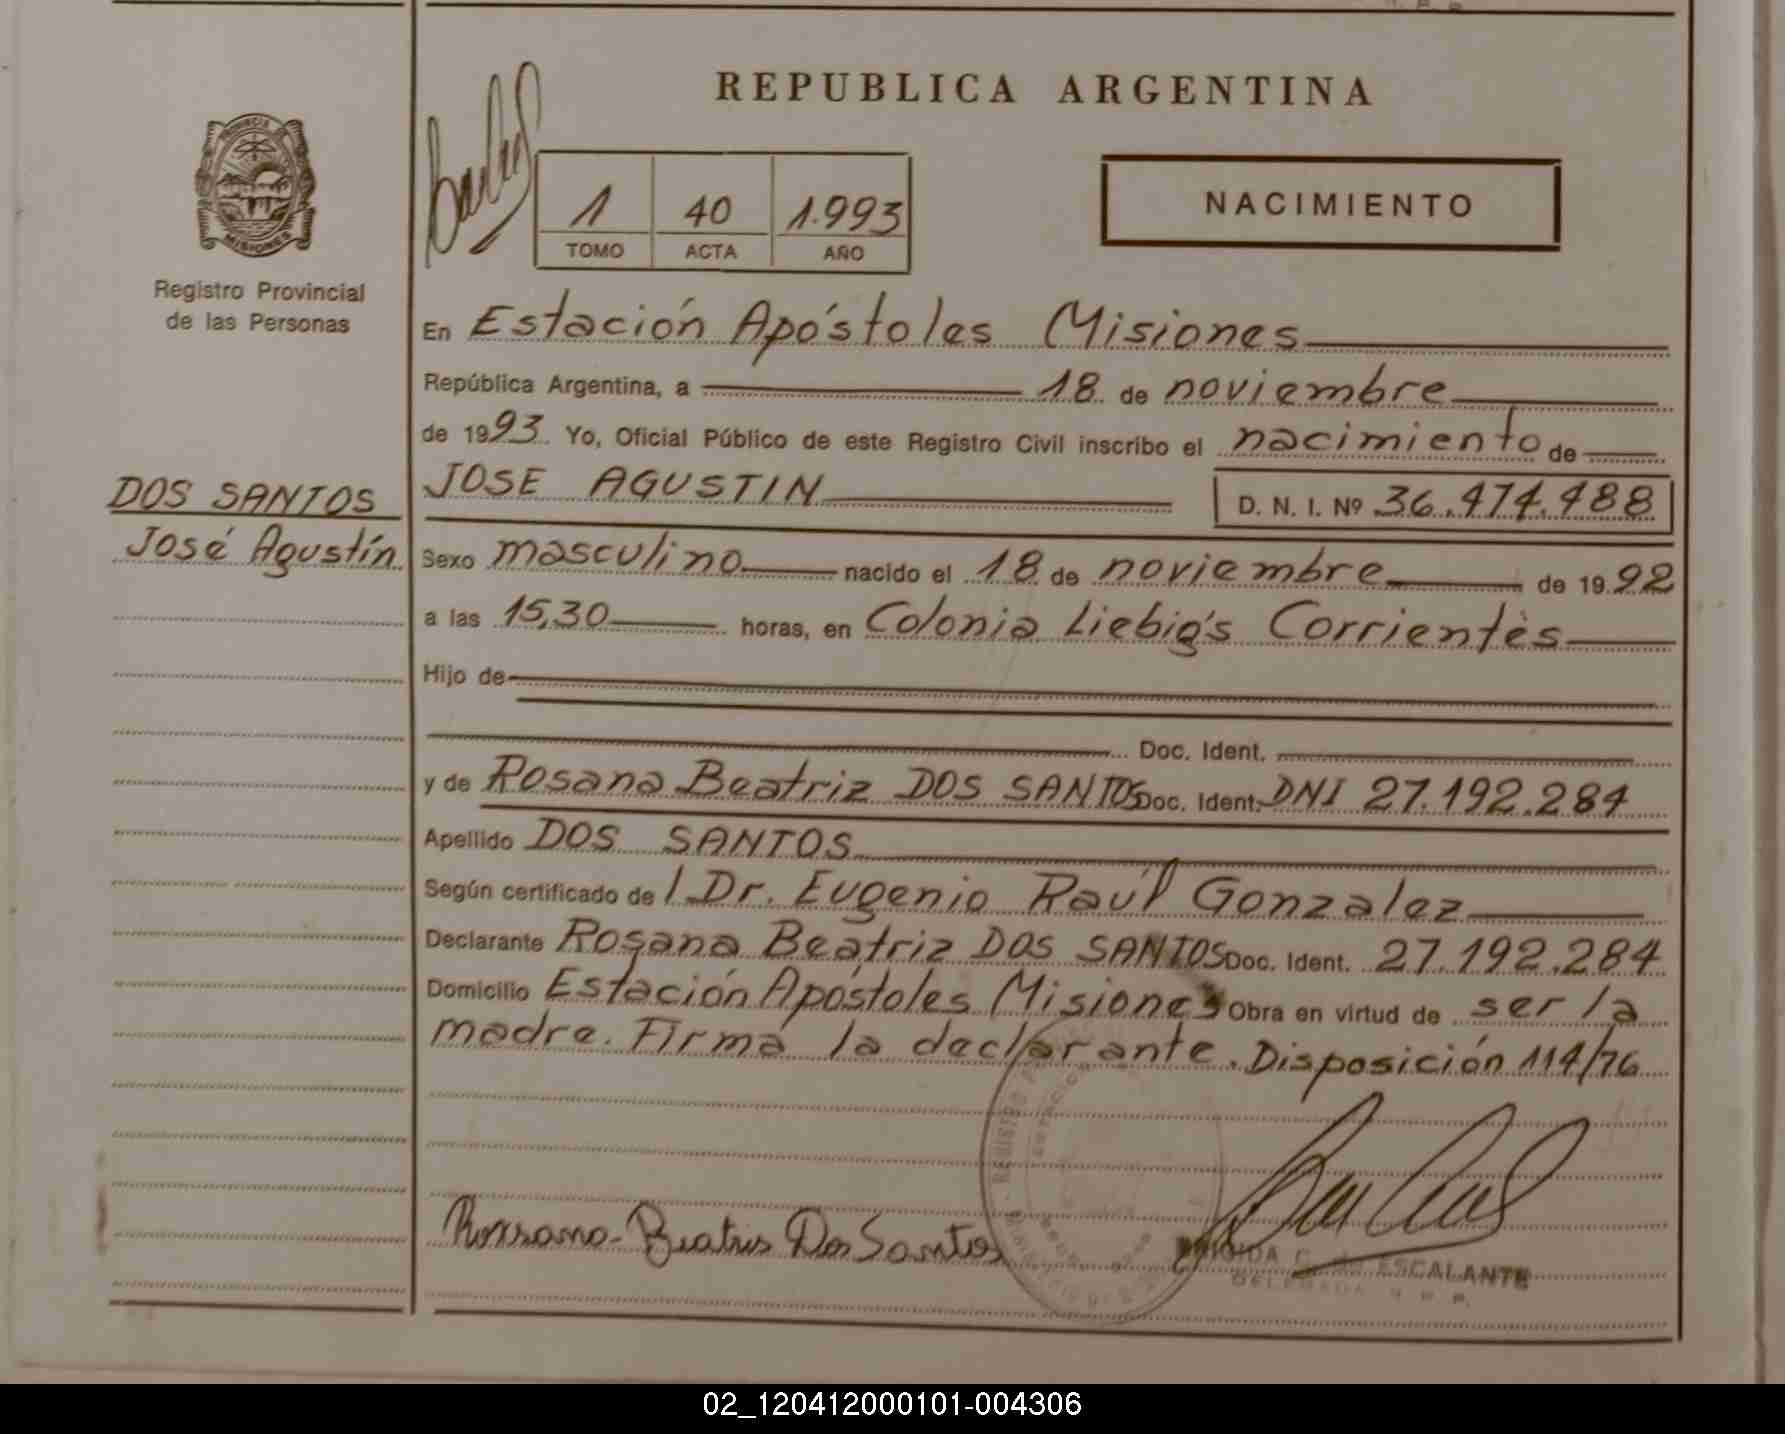 REPUBLICA ARGENTINA
PROVINCIA DE
MISIONES
Registro Provincial
de las Personas
1 40 1.993
TOMO ACTA AÑO
NACIMIENTO
En Estación Apóstoles Misiones
República Argentina, a 18 de noviembre
de 1993 Yo, Oficial Público de este Registro Civil inscribo el nacimiento de
DOS SANTOS
José Agustín
JOSE AGUSTIN D. N. I. Nº 36.474.488
Sexo masculino nacido el 18 de noviembre de 1992
a las 15,30 horas, en Colonia Liebig's Corrientes
Hijo de
Doc. Ident.
y de Rosana Beatriz DOS SANTOS Doc. Ident. DNI 27.192.284
Apellido DOS SANTOS
Según certificado de l Dr. Eugenio Raúl Gonzalez
Declarante Rosana Beatriz DOS SANTOS Doc. Ident. 27.192.284
Domicilio Estación Apóstoles Misiones Obra en virtud de ser la
madre. Firma la declarante. Disposición 114/76
Rossana Beatris Dos Santos
BRIGIDA C. de ESCALANTE
DELEGADA R. P. P.
02_120412000101-004306